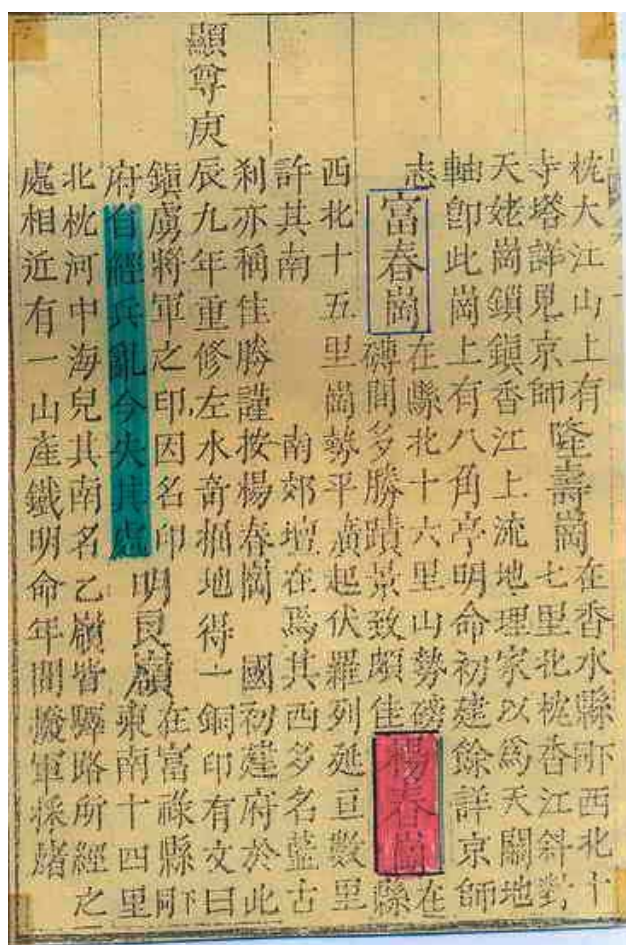 枕大江山上有
寺塔詳見京師
隆壽崗
在香水縣䢿西北十
七里北枕香江斜對
天姥崗鎖鎮香江上流地理家以爲天關地
軸卽此崗上有八角亭明命初建餘詳京師
志
富春崗
在縣北十六里山勢磅
礴間多勝蹟景致頗佳
楊春崗
在
縣
西北十五里崗勢平廣起伏羅列延亘數里
許其南 南郊壇在焉其西多名藍古
刹亦稱佳勝謹按楊春崗 國初建府於此
顯尊庚辰九年重修左水奇掘地得一銅印有文曰
鎮虜將軍之印因名印
府自經兵亂今失其處
明良嶺
在富祿縣下
東南十四里
北枕河中海兒其南名乙嶺皆驛路所經之
處相近有一山產鐵明命年間撥軍採